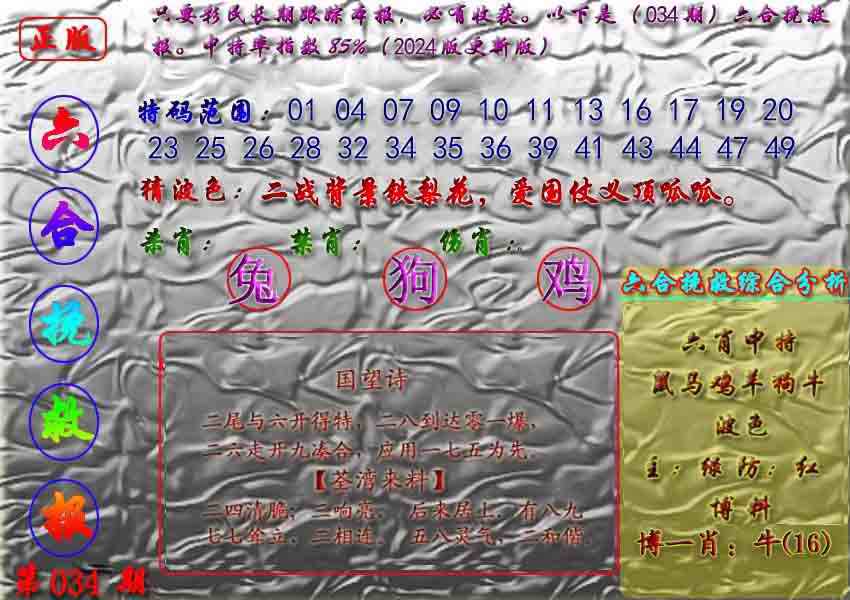 正版
只要彩民长期跟踪本报，必有收获。以下是（034期）六合挽救
报。中特率指数85%（2024版更新版）
六
合
挽
救
报
第 034 期
特码范围：01 04 07 09 10 11 13 16 17 19 20
23 25 26 28 32 34 35 36 39 41 43 44 47 49
猜波色：二战背景铁梨花，爱国仗义顶呱呱。
杀肖： 禁肖： 伤肖：
兔 狗 鸡
国望诗
二尾与六开得特，二八到达零一爆，
二六走开九凑合，应用一七五为先。
【荃湾来料】
二四清脆，三响亮， 后来居上，有八九
七七金立，三相连， 五八灵气，二和偕。
六合挽救综合分析
六肖中特
鼠马鸡羊狗牛
波色
主：绿 防：红
博料
博一肖：牛(16)